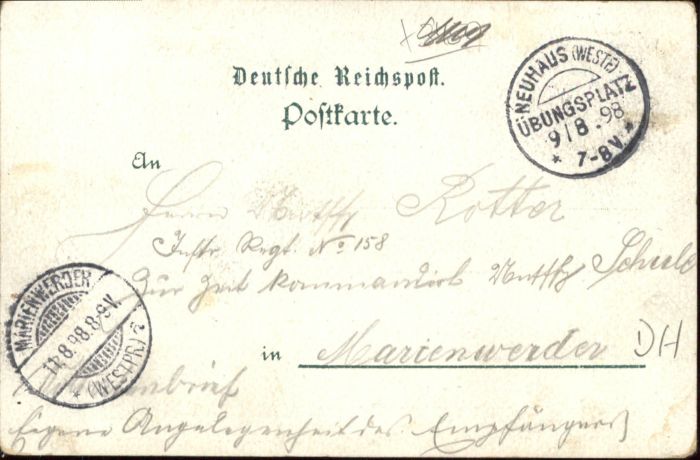 Deutsche Reichspost.
Postkarte.
NEUHAUS (WESTF)
ÜBUNGSPLATZ
9/8.98
* 7-8V. *
An
Herrn Rotter
Inftr Regt. No 158
Zur Zeit kommandirt Schule
in Marienwerder DH
MARIENWERDER
11.8.98.8-9V.
* (WESTPR.)
Eigene Angelegenheit des Empfängers